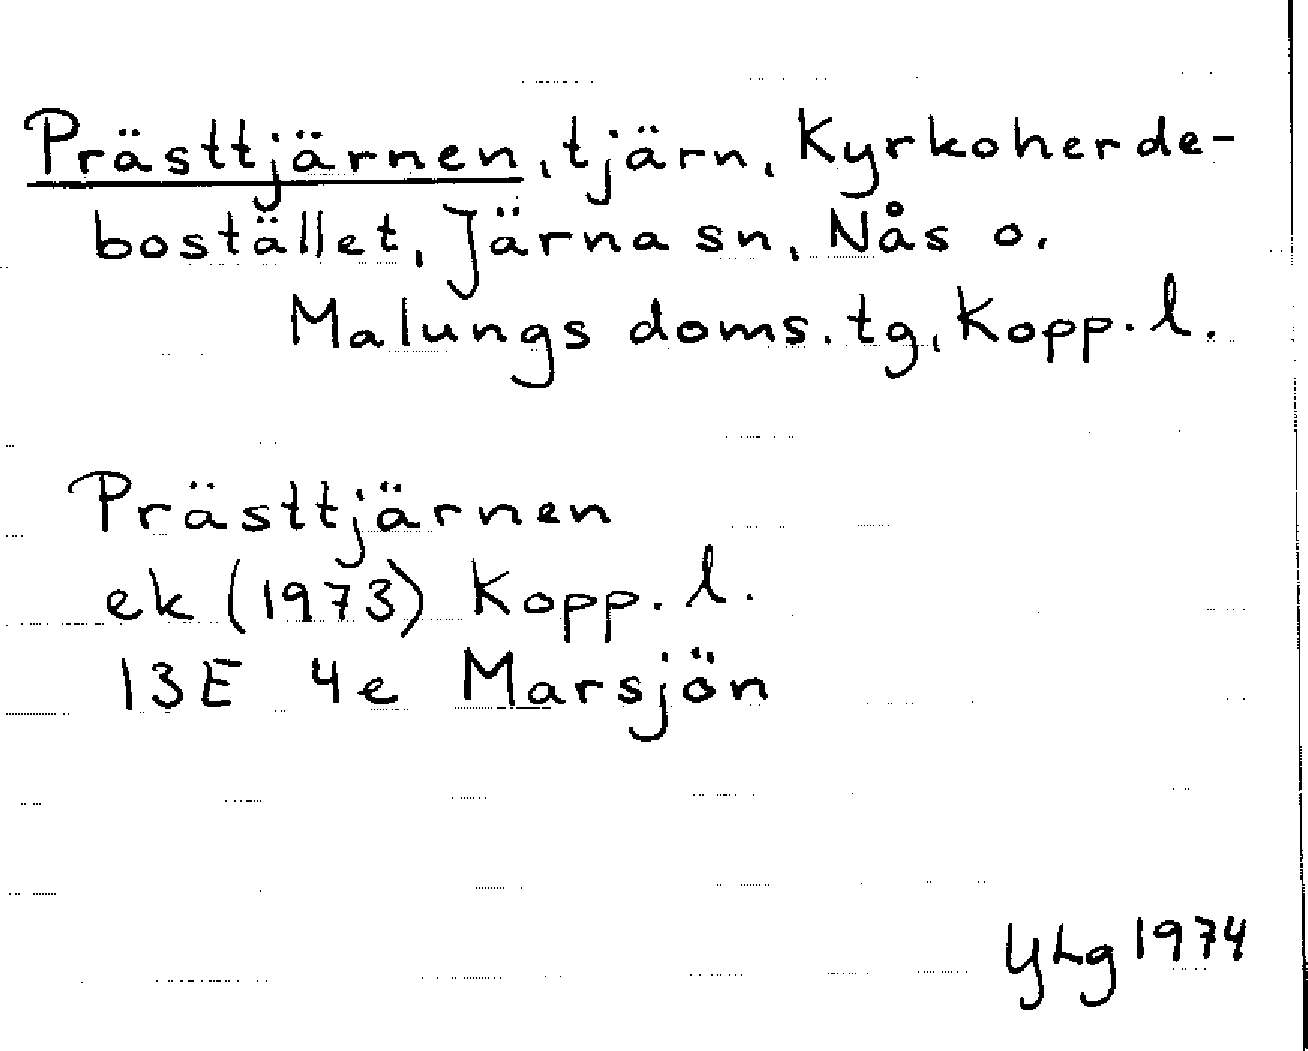 Prästtjärnen, tjärn, Kyrkoherde-
bostället, Järna sn, Nås o.
Malungs doms. tg, Kopp. l.
Prästtjärnen
ek (1973) Kopp. l.
13E 4e Marsjön
YLg 1974